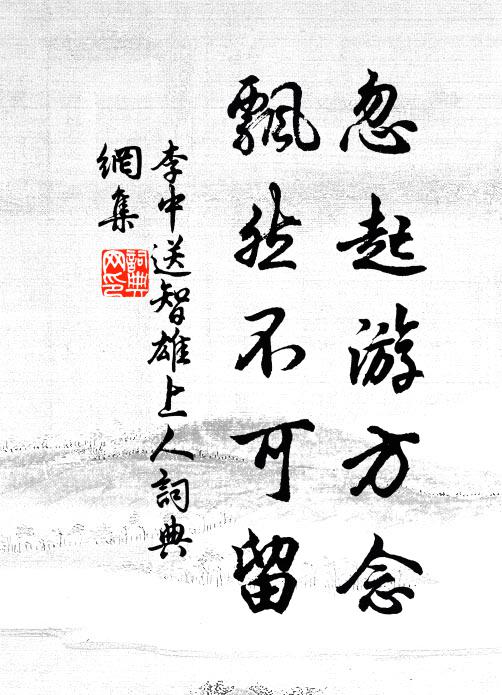 忽起游方念
飄然不可留
李中送智雄上人詞典
網集
詞典
网印